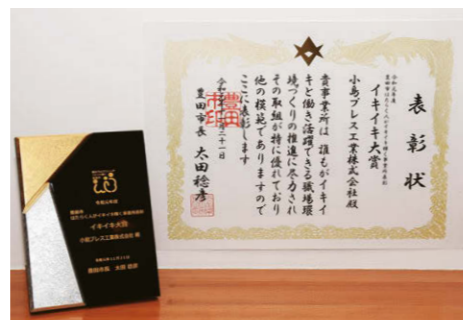 表彰状
令和元年度
豊田市はたらく人がイキイキ輝く事業所表彰
イキイキ大賞
小島プレス工業株式会社殿
貴事業所は誰もがイキイ
キと働き活躍できる職場環
境づくりの推進に尽力され
その取組が特に優れており
他の模範でありますので
ここに表彰します
豊田市長 太田稔彦
令和元年度
豊田市
はたらく人がイキイキ輝く事業所表彰
イキイキ大賞
小島プレス工業株式会社 殿
豊田市長 太田 稔彦